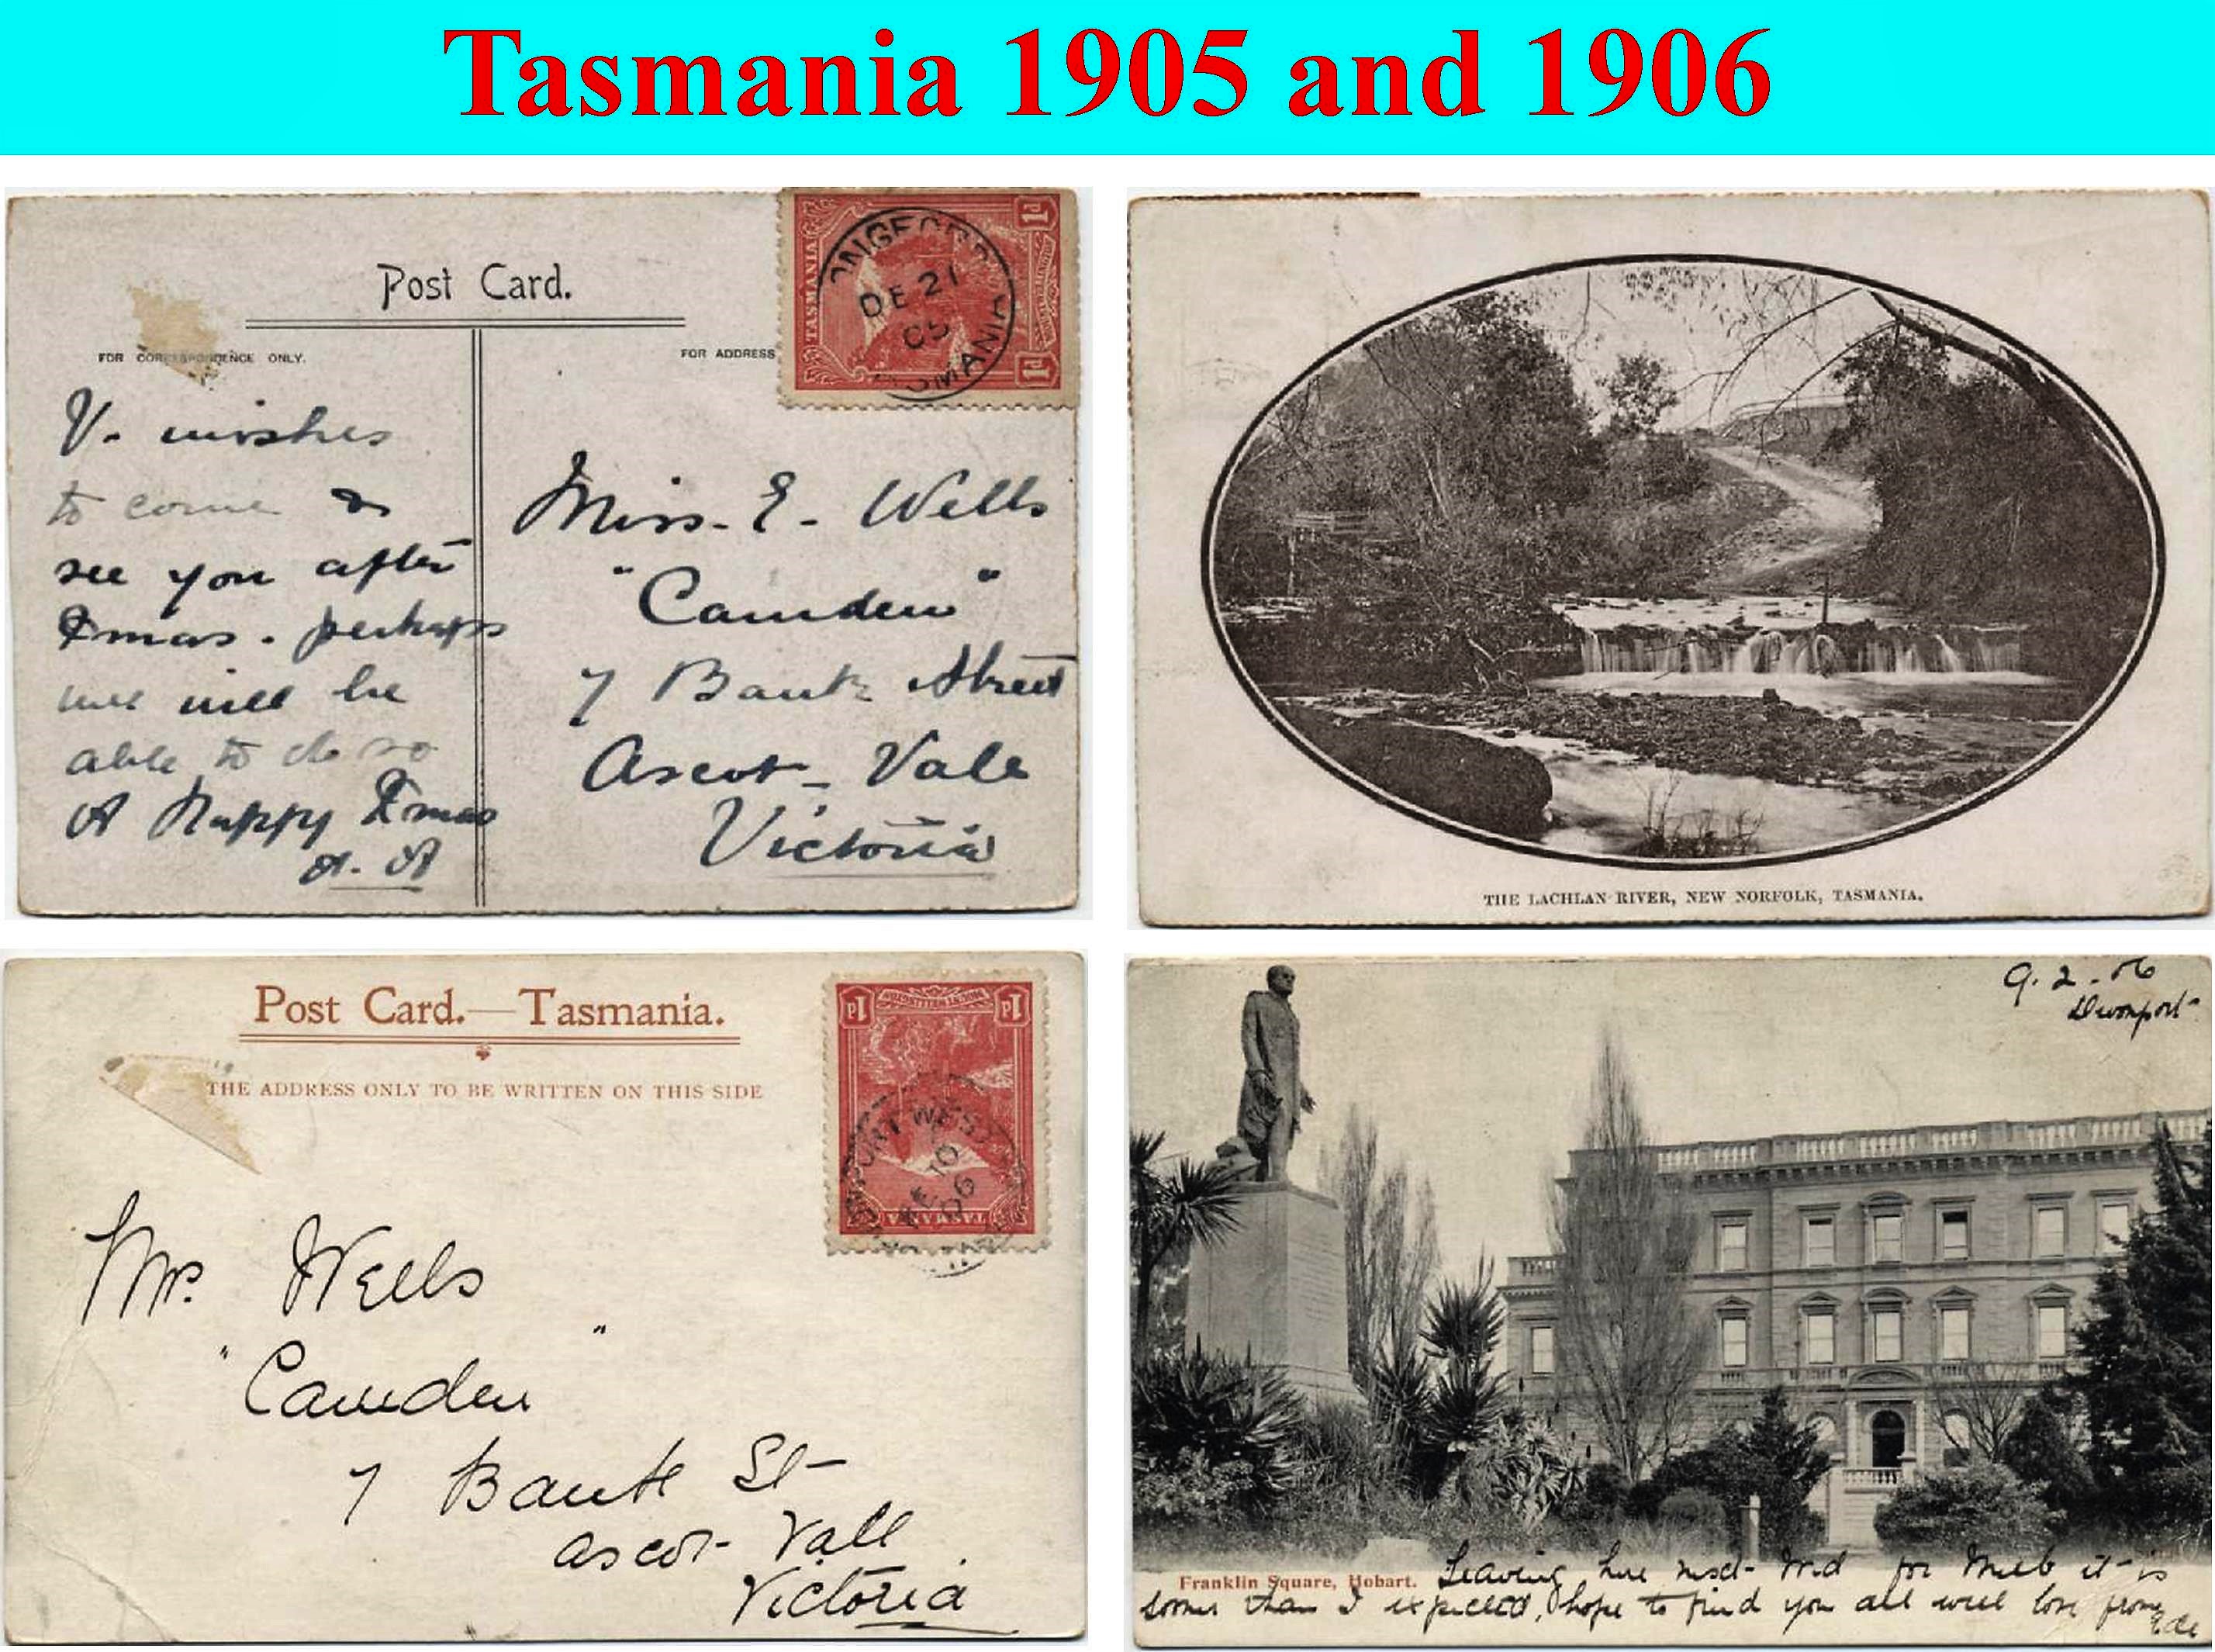 Tasmania 1905 and 1906
Post Card.
FOR CORRESPONDENCE ONLY.
FOR ADDRESS
TASMANIA
1d
1d
ONGFORD
DE 21
05
SMANIA
V. wishes
to come &
see you after
Xmas. perhaps
will be
able to do so
A Happy Xmas
A. A
Miss. E. Wells
"Camden"
7 Bank Street
Ascot Vale
Victoria
THE LACHLAN RIVER, NEW NORFOLK, TASMANIA.
Post Card.—Tasmania.
THE ADDRESS ONLY TO BE WRITTEN ON THIS SIDE
1d
1d
TASMANIA
PORT WEST
FE 10
06
Mr. Wells
"Camden"
7 Bank St
Ascot Vale
Victoria
9.2.06
Devonport
Franklin Square, Hobart.
Leaving here next Wed for Melb it is
sooner than I expected, hope to find you all well love from